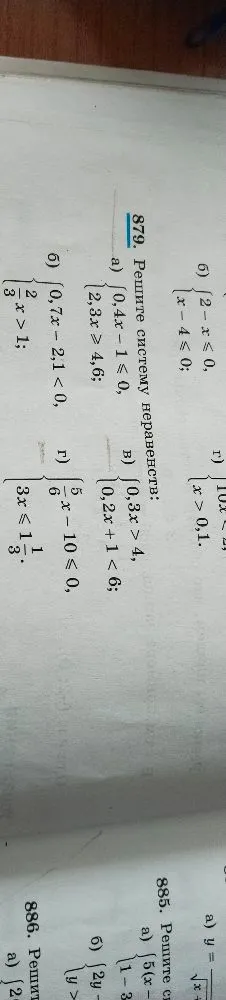 б) { 2 − x ⩽ 0,
x − 4 ⩽ 0;
г) { 10x < 2,
x > 0,1.
879. Решите систему неравенств:
а) { 0,4x − 1 ⩽ 0,
2,3x ⩾ 4,6;
в) { 0,3x > 4,
0,2x + 1 < 6;
б) { 0,7x − 2,1 < 0,
2/3 x > 1;
г) { 5/6 x − 10 ⩽ 0,
3x ⩽ 1 1/3.
а) y =
885. Решите
а) { 5(x −
1 − 3
б) { 2y −
y >
886.
а) { 2